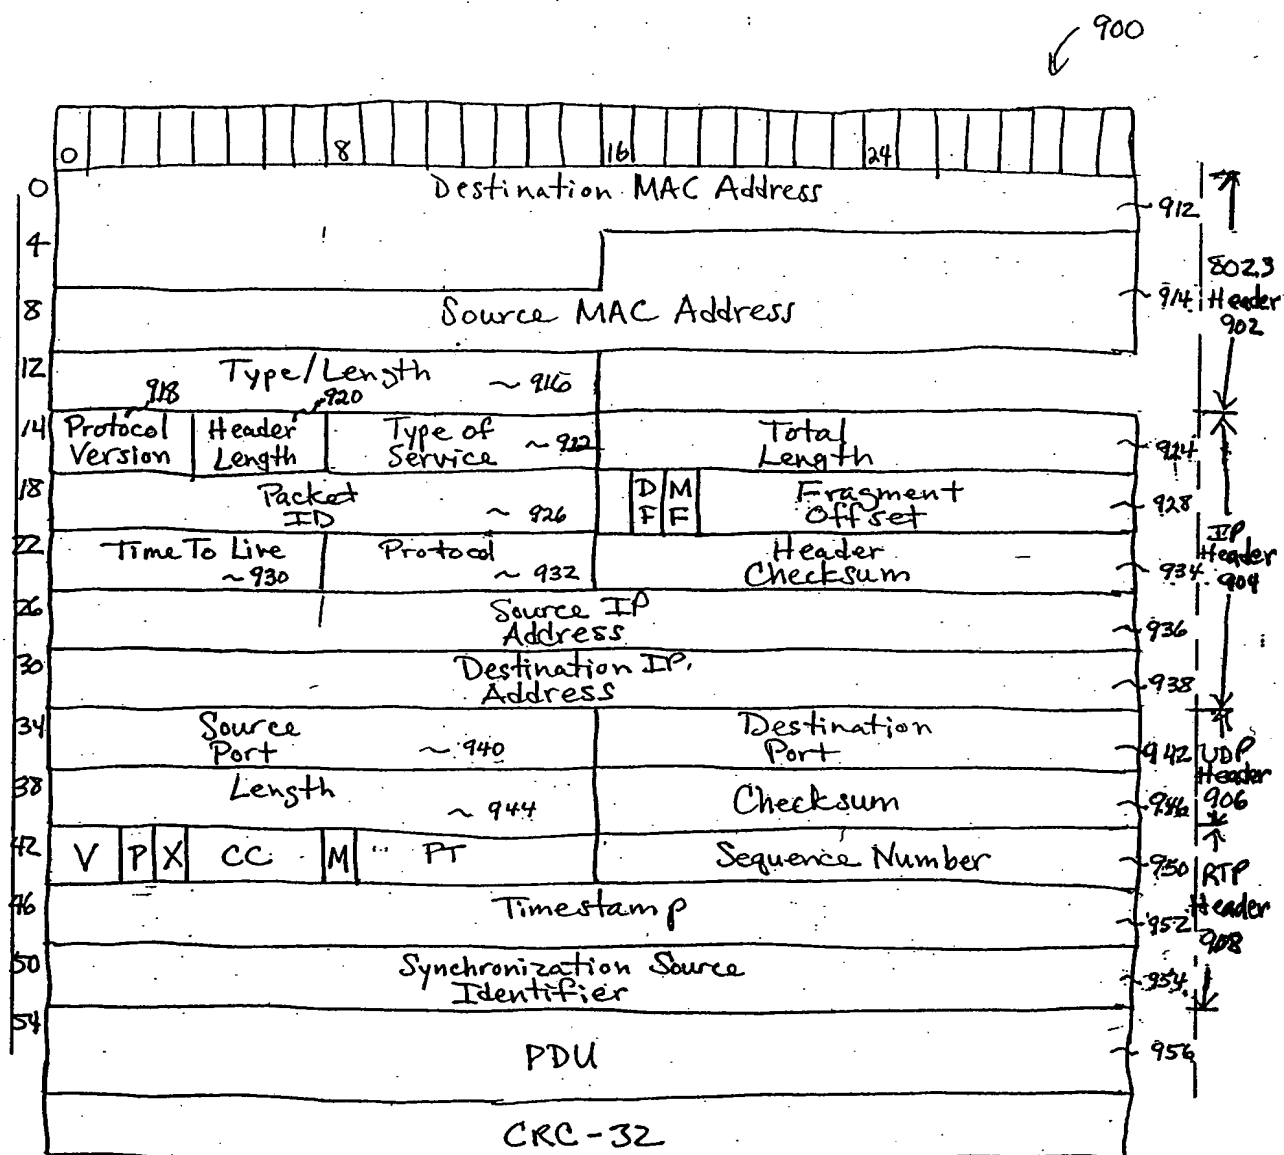 900
0 8 16 24
0 Destination MAC Address 912
4
802.3 Header 902
8 Source MAC Address 914
12 Type/Length 916
918 920
14 Protocol Version Header Length Type of Service 922 Total Length 924
18 Packet ID 926 DF MF Fragment Offset 928
22 Time To Live 930 Protocol 932 Header Checksum 934
IP Header 904
26 Source IP Address 936
30 Destination IP. Address 938
34 Source Port 940 Destination Port 942
UDP Header 906
38 Length 944 Checksum 946
42 V P X CC M PT Sequence Number 950
RTP Header 908
46 Timestamp 952
50 Synchronization Source Identifier 954
54
PDU 956
CRC-32